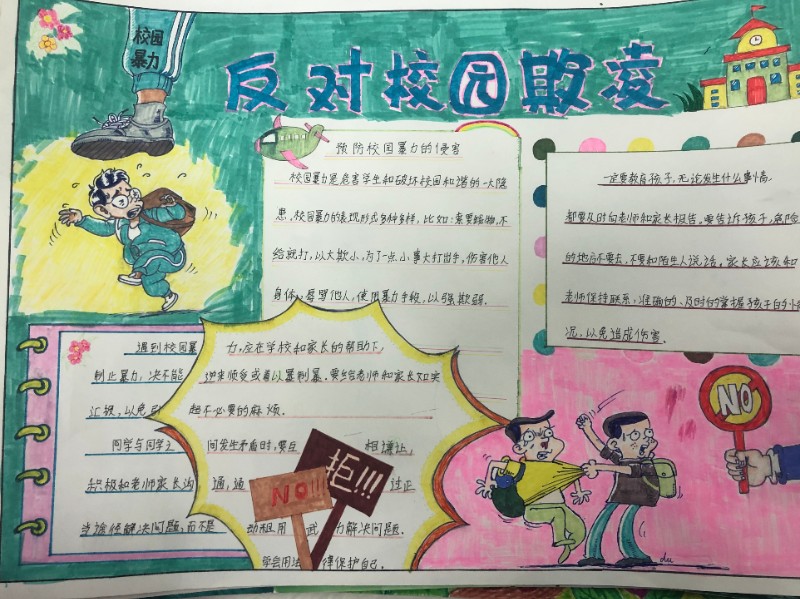 校园
暴力
反对校园欺凌
预防校园暴力的侵害
校园暴力是危害学生和破坏校园和谐的一大隐
患,校园暴力的表现形式多种多样,比如:索要财物,不
给就打,以大欺小,为了一点小事大打出手,伤害他人
身体、辱骂他人,使用暴力手段,以强欺弱.
一定要教育孩子,无论发生什么事情,
都要及时向老师和家长报告。要告诉孩子,危险
的地方不要去,不要和陌生人说话。家长应该和
老师保持联系,准确的、及时的掌握孩子的情
况,以免造成伤害.
遇到校园暴力,应在学校和家长的帮助下,
制止暴力,决不能逆来顺受或者以暴制暴.要给老师和家长如实
汇报,以免引起不必要的麻烦.
同学与同学之间发生矛盾时,要互相谦让,
积极和老师家长沟通,通过正
当途径解决问题,而不是动粗用武力解决问题.
学会用法律保护自己.
NO!!!
拒!!!
NO